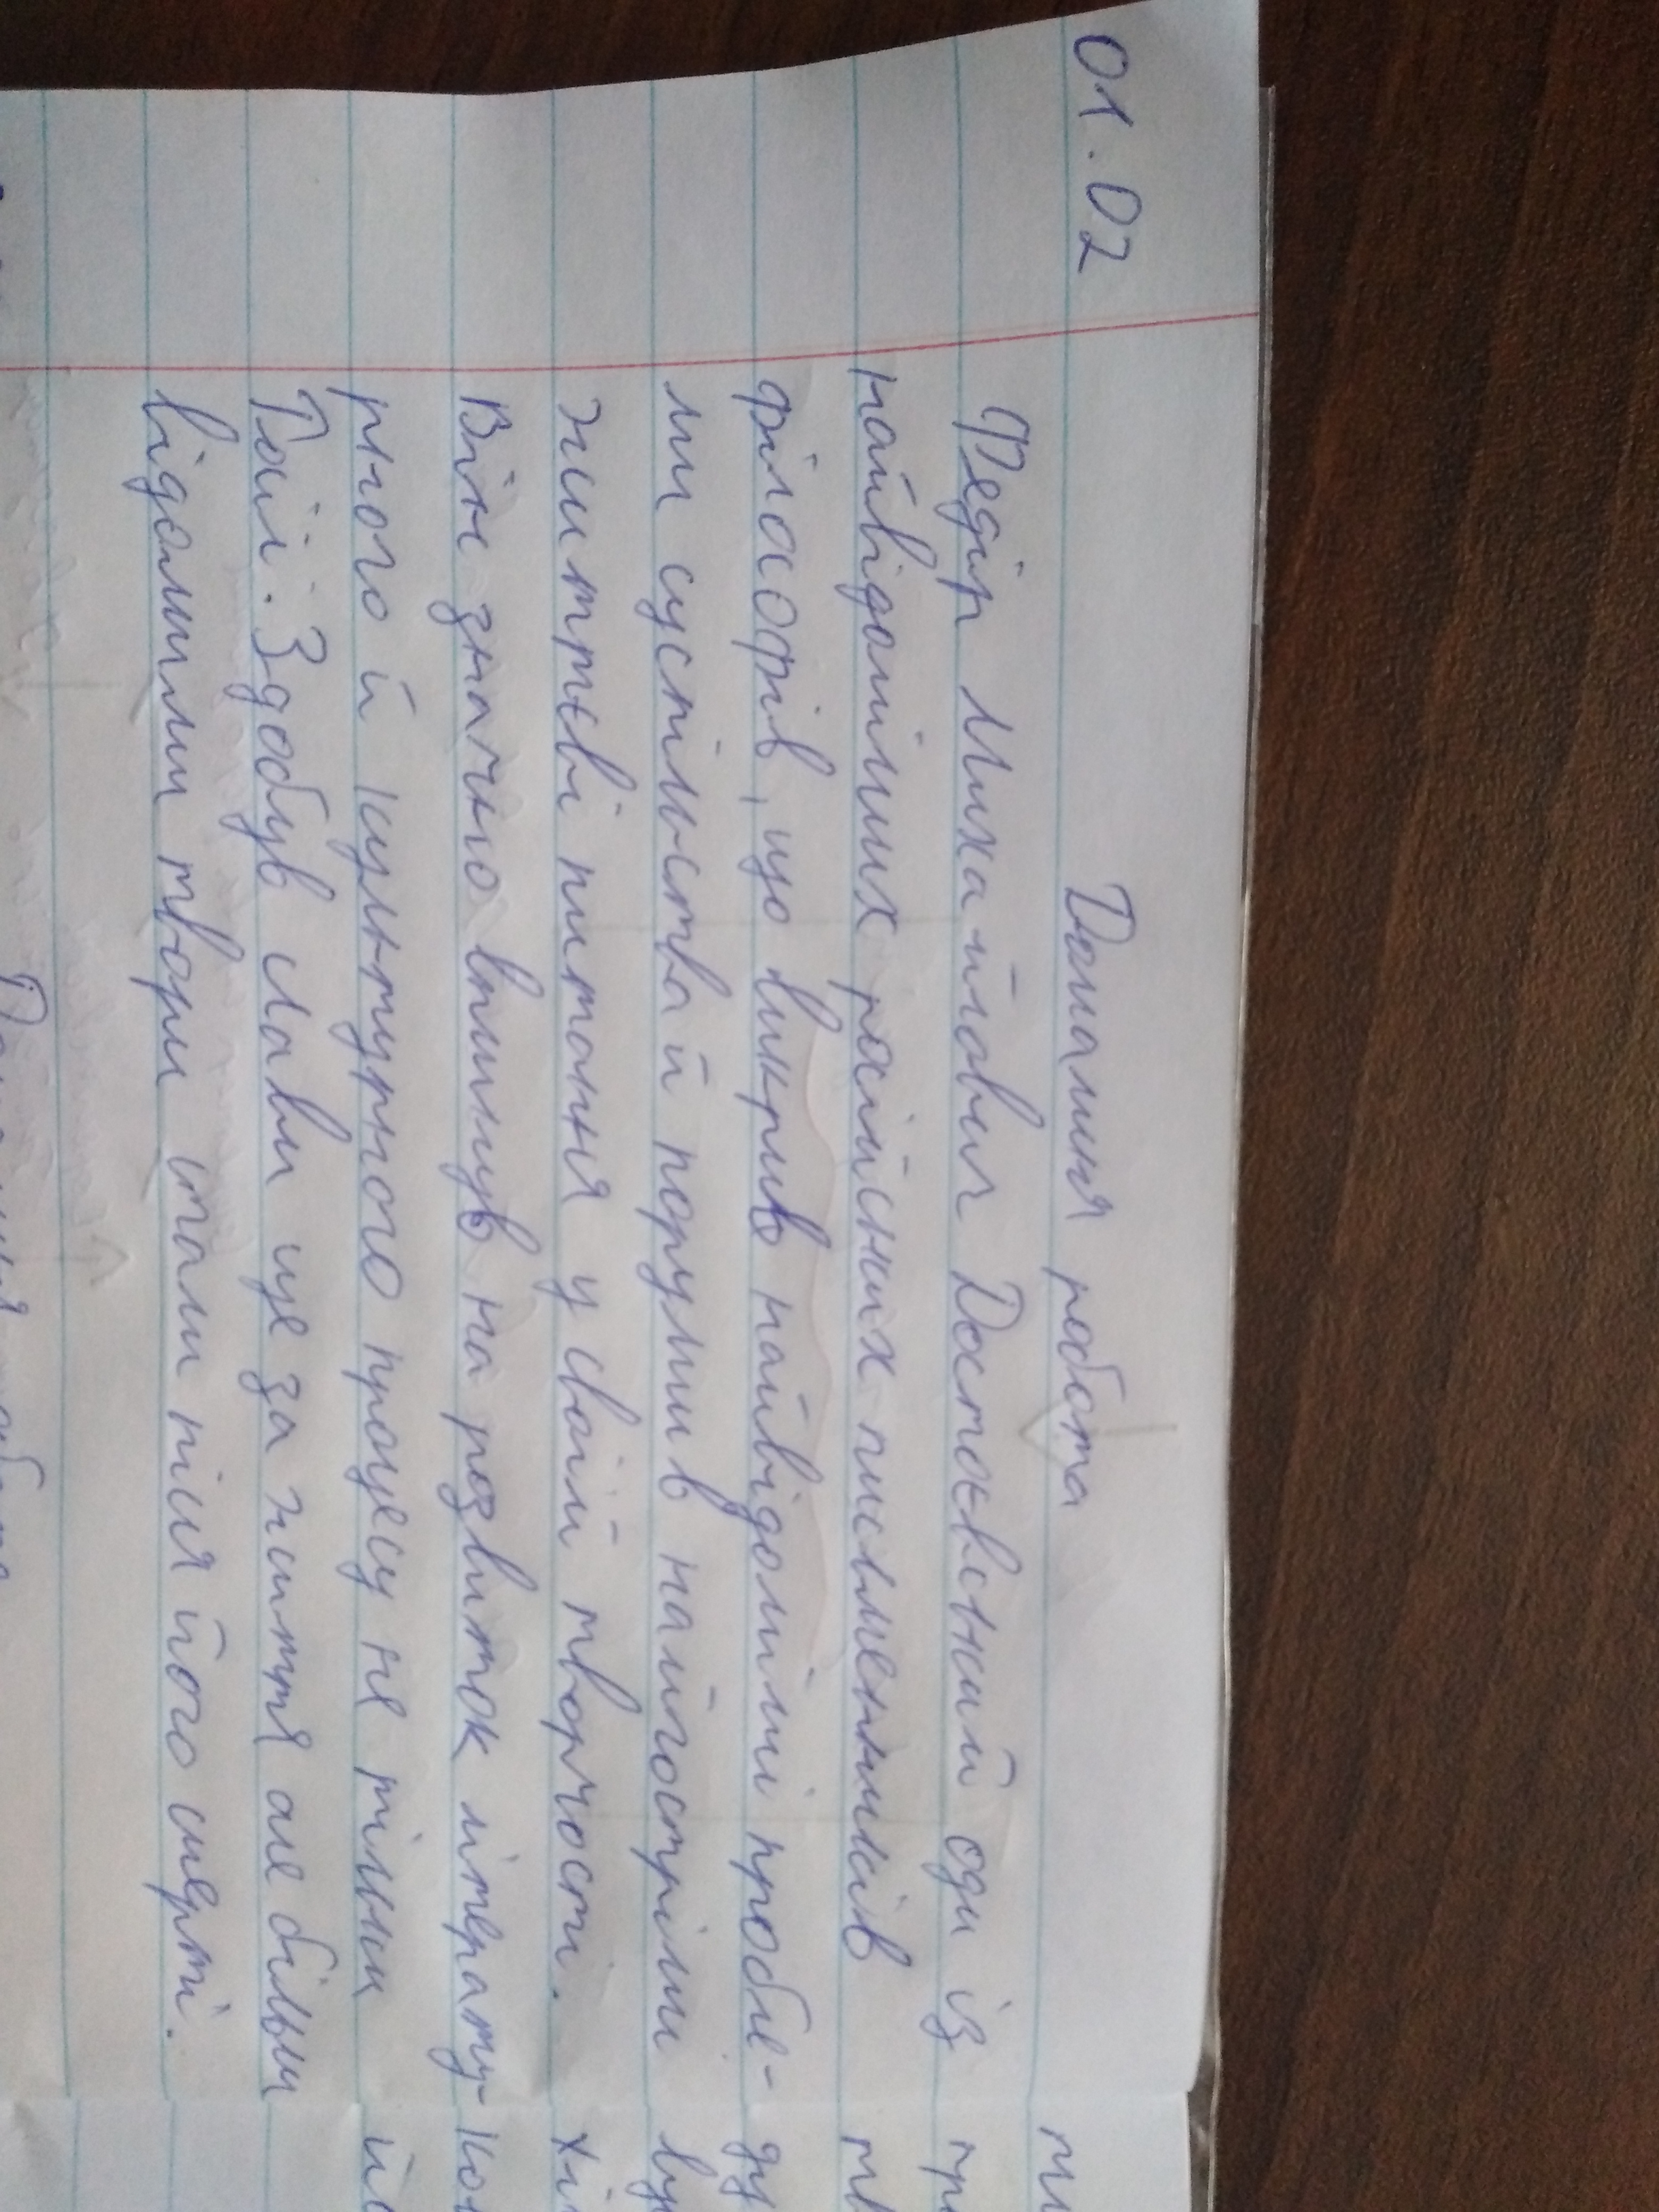 01.02
Домашня робота
Федір Михайлович Достоєвський оди із
найвідоміших російських письменників
філософів, що викрив найвідоміші пробле-
ми суспільства й порушив найгострішi
життєві питання у своїй творчості.
Він значно вплинув на розвиток літерату-
рного й культурного процесу не тільки
Росії. Здобув слави ще за життя але більш
відомими твори стали після його смерті.
Домашня робота